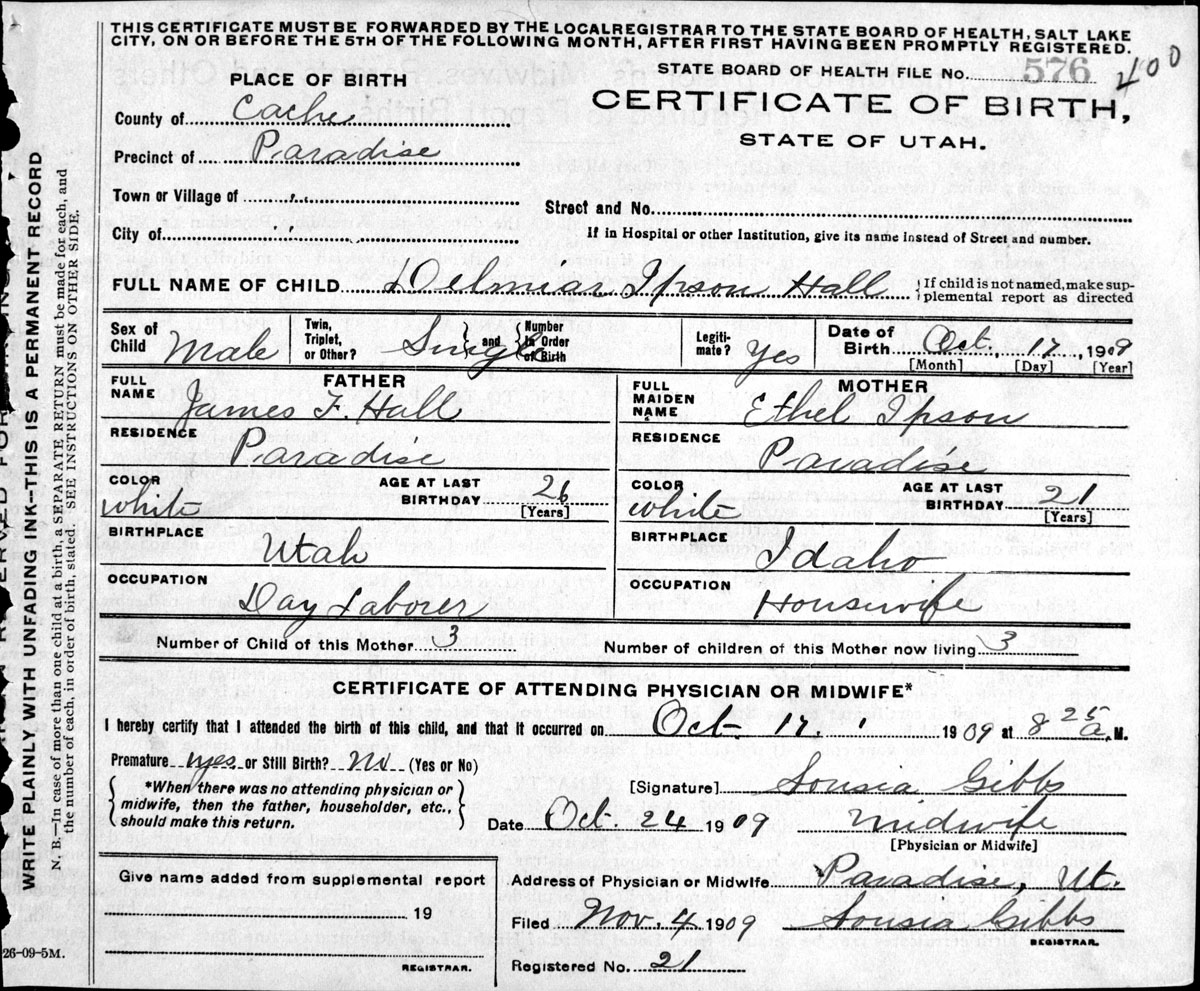 THIS CERTIFICATE MUST BE FORWARDED BY THE LOCAL REGISTRAR TO THE STATE BOARD OF HEALTH, SALT LAKE
CITY, ON OR BEFORE THE 5TH OF THE FOLLOWING MONTH, AFTER FIRST HAVING BEEN PROMPTLY REGISTERED.
STATE BOARD OF HEALTH FILE No. 576 400
PLACE OF BIRTH
CERTIFICATE OF BIRTH,
STATE OF UTAH.
County of Cache
Precinct of Paradise
Town or Village of "
Street and No.
City of "
If in Hospital or other Institution, give its name instead of Street and number.
FULL NAME OF CHILD Delmiar Ipson Hall { If child is not named, make sup-
plemental report as directed
Sex of Child Male
Twin, Triplet, or Other? Single } and { Number in Order of Birth
Legiti-mate? yes
Date of Birth Oct. 17, 1909
[Month] [Day] [Year]
FATHER
FULL NAME James F. Hall
RESIDENCE Paradise
COLOR white AGE AT LAST BIRTHDAY 26
[Years]
BIRTHPLACE Utah
OCCUPATION Day Laborer
MOTHER
FULL MAIDEN NAME Ethel Ipson
RESIDENCE Paradise
COLOR white AGE AT LAST BIRTHDAY 21
[Years]
BIRTHPLACE Idaho
OCCUPATION Housewife
Number of Child of this Mother 3 Number of children of this Mother now living 3
CERTIFICATE OF ATTENDING PHYSICIAN OR MIDWIFE*
I hereby certify that I attended the birth of this child, and that it occurred on Oct. 17. 1909 at 8 25 a. M.
Premature yes or Still Birth? No (Yes or No)
*When there was no attending physician or
midwife, then the father, householder, etc.,
should make this return.
[Signature] Sousia Gibbs
Date Oct. 24 1909 Midwife
[Physician or Midwife]
Give name added from supplemental report
19
REGISTRAR.
Address of Physician or Midwife Paradise, Ut.
Filed Nov. 4 1909 Sousia Gibbs
REGISTRAR.
Registered No. 21
WRITE PLAINLY WITH UNFADING INK--THIS IS A PERMANENT RECORD
N. B.—In case of more than one child at a birth, a SEPARATE RETURN must be made for each, and
the number of each, in order of birth, stated. SEE INSTRUCTIONS ON OTHER SIDE.
26-09-5M.